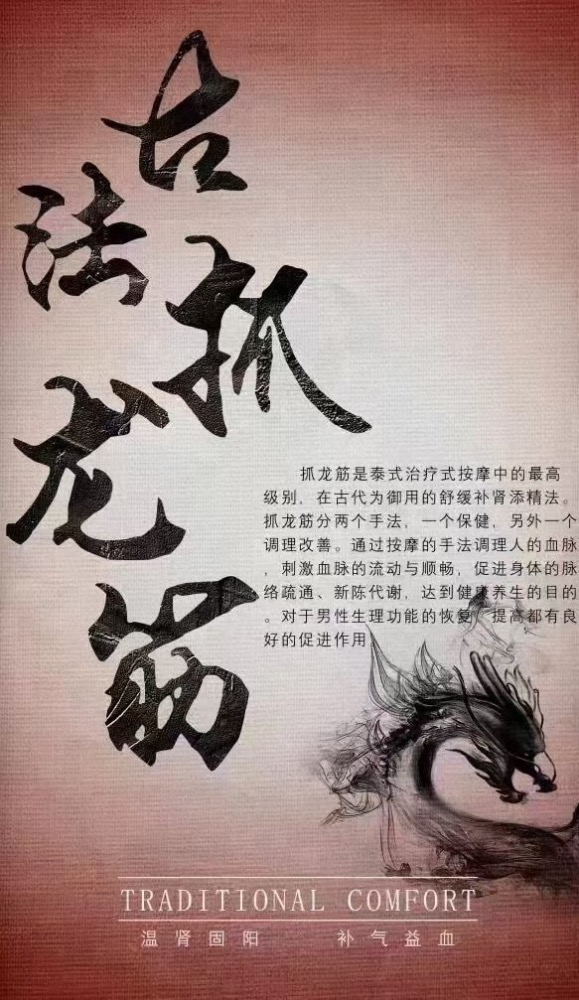 古法抓龙筋
抓龙筋是泰式治疗式按摩中的最高
级别，在古代为御用的舒缓补肾添精法。
抓龙筋分两个手法，一个保健，另外一个
调理改善。通过按摩的手法调理人的血脉
，刺激血脉的流动与顺畅，促进身体的脉
络疏通、新陈代谢，达到健康养生的目的
。对于男性生理功能的恢复，提高都有良
好的促进作用
TRADITIONAL COMFORT
温肾固阳 补气益血